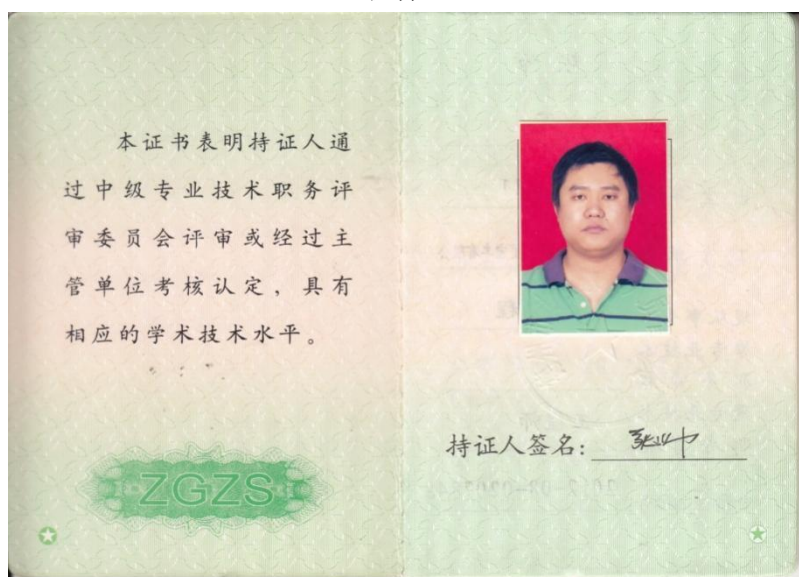 本证书表明持证人通
过中级专业技术职务评
审委员会评审或经过主
管单位考核认定，具有
相应的学术技术水平。
ZGZS
持证人签名：